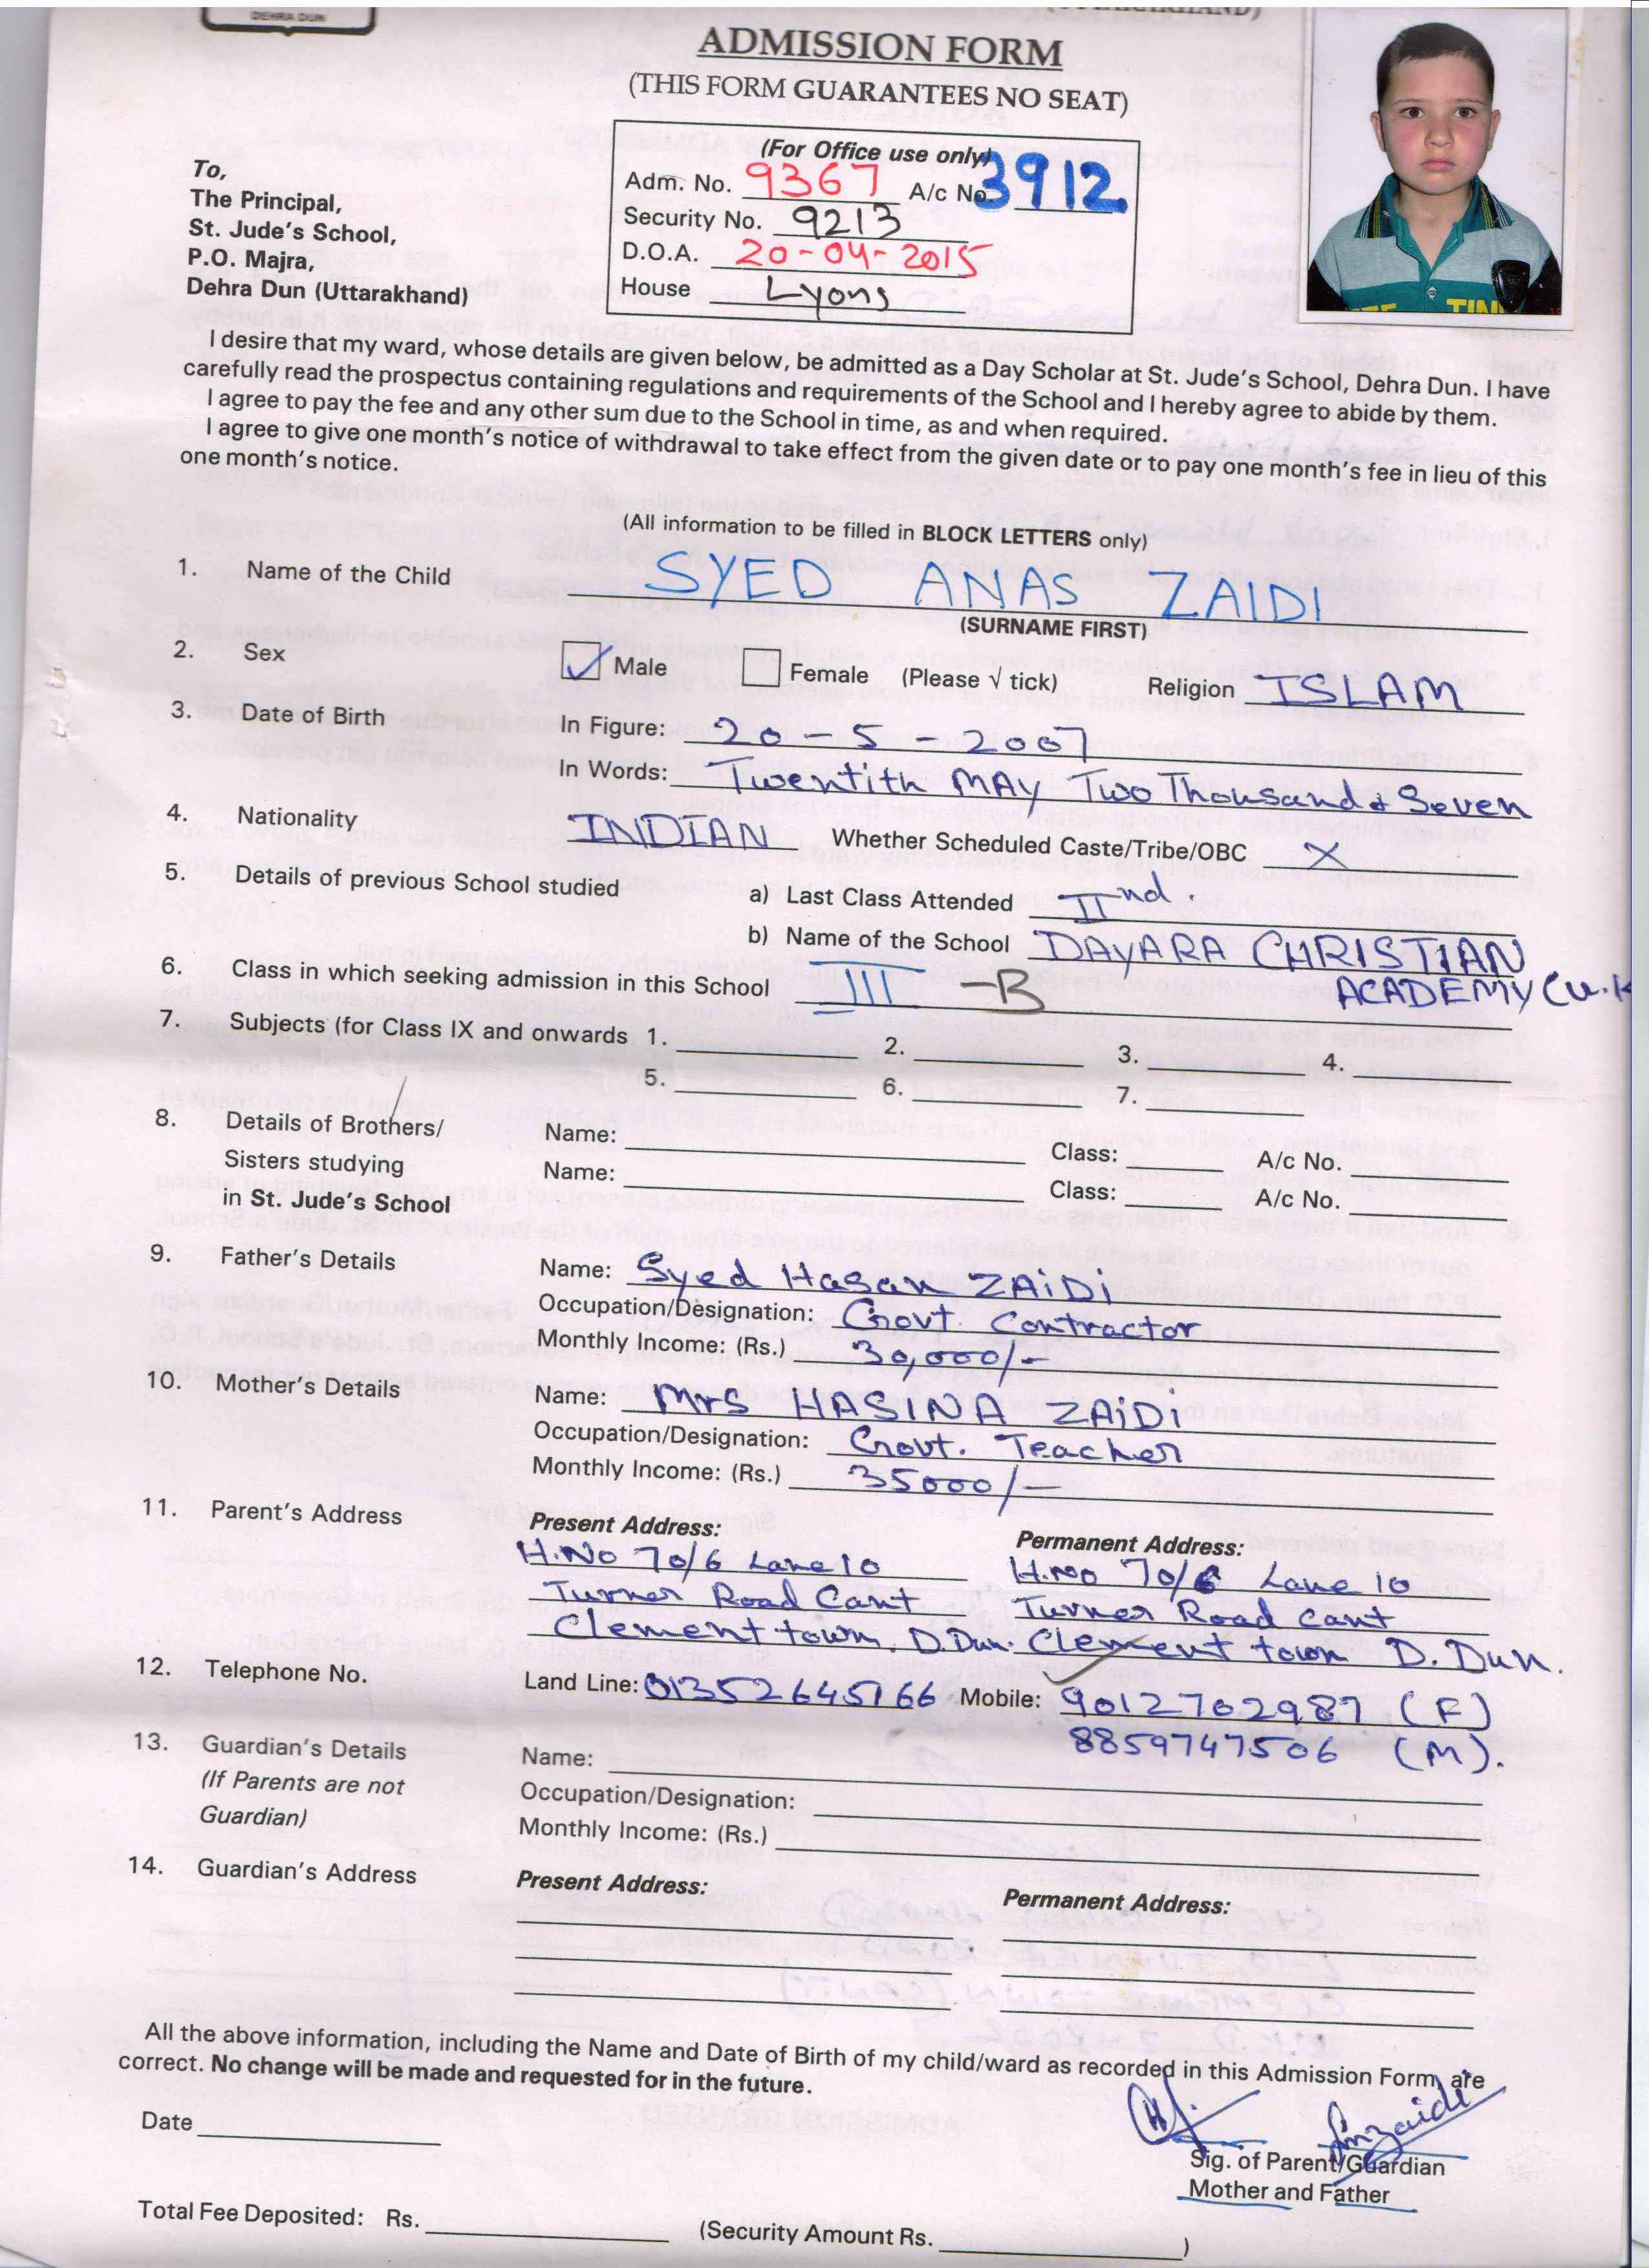 DEHRA DUN
ADMISSION FORM
(THIS FORM GUARANTEES NO SEAT)
(For Office use only)
Adm. No. 9367 A/c No. 3912
Security No. 9213
D.O.A. 20-04-2015
House Lyons
To,
The Principal,
St. Jude's School,
P.O. Majra,
Dehra Dun (Uttarakhand)
I desire that my ward, whose details are given below, be admitted as a Day Scholar at St. Jude's School, Dehra Dun. I have
carefully read the prospectus containing regulations and requirements of the School and I hereby agree to abide by them.
I agree to pay the fee and any other sum due to the School in time, as and when required.
I agree to give one month's notice of withdrawal to take effect from the given date or to pay one month's fee in lieu of this
one month's notice.
(All information to be filled in BLOCK LETTERS only)
1. Name of the Child SYED ANAS ZAIDI
(SURNAME FIRST)
2. Sex ✓ Male Female (Please √ tick) Religion ISLAM
3. Date of Birth In Figure: 20-5-2007
In Words: Twentith MAY Two Thousand & Seven
4. Nationality INDIAN Whether Scheduled Caste/Tribe/OBC X
5. Details of previous School studied a) Last Class Attended IInd.
b) Name of the School DAYARA CHRISTIAN
ACADEMY (U.K
6. Class in which seeking admission in this School III -B
7. Subjects (for Class IX and onwards 1. 2. 3. 4.
5. 6. 7.
8. Details of Brothers/ Name: Class: A/c No.
Sisters studying Name: Class: A/c No.
in St. Jude's School
9. Father's Details Name: Syed Hasan ZAiDi
Occupation/Designation: Govt. Contractor
Monthly Income: (Rs.) 30,000/-
10. Mother's Details Name: Mrs HASINA ZAiDi
Occupation/Designation: Govt. Teacher
Monthly Income: (Rs.) 35000/-
11. Parent's Address Present Address: Permanent Address:
H.No 70/6 Lane 10 H.No 70/6 Lane 10
Turner Road Cant Turner Road cant
Clement town. D.Dun. Clement town D. Dun.
12. Telephone No. Land Line: 01352645166 Mobile: 9012702987 (F)
8859747506 (M).
13. Guardian's Details Name:
(If Parents are not Occupation/Designation:
Guardian) Monthly Income: (Rs.)
14. Guardian's Address Present Address: Permanent Address:
All the above information, including the Name and Date of Birth of my child/ward as recorded in this Admission Form, are
correct. No change will be made and requested for in the future.
Date
Sig. of Parent/Guardian
Mother and Father
Total Fee Deposited: Rs. (Security Amount Rs. )